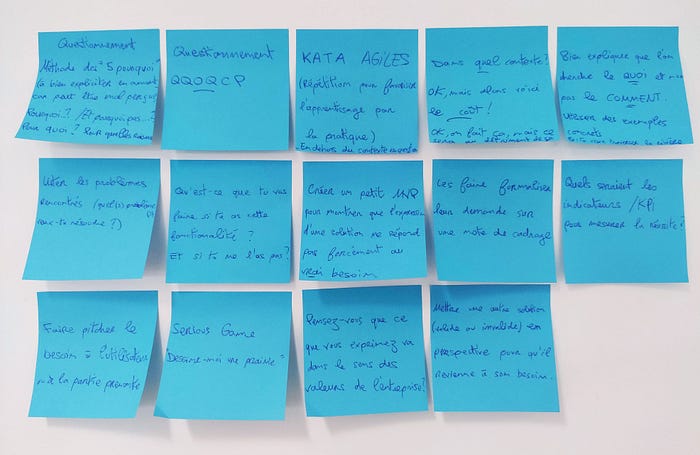 Questionnement
Méthode des "5 pourquoi"
(à bien expliciter en amont
car peut être mal perçu)
Pourquoi? / Et pourquoi pas...?
Pour quoi? Pour quelles raisons
Questionnement
QQOQCP
KATA AGILES
(Répétition pour favoriser
l'apprentissage par
la pratique)
En dehors du contexte
Dans quel contexte?
OK, mais alors voici
le coût!
OK, on fait ça, mais ce
sera au détriment de
Bien expliquer que l'on
cherche le QUOI et non
pas le COMMENT.
Utiliser des exemples
concrets
Lister les problèmes
rencontrés (quel(s) problème(s)
veux-tu résoudre?)
Qu'est-ce que tu vas
faire si tu as cette
fonctionnalité?
Et si tu ne l'as pas?
Créer un petit MVP
pour montrer que l'expression
d'une solution ne répond
pas forcément au
vrai besoin
Les faire formaliser
leur demande sur
une note de cadrage
Quels seraient les
indicateurs / KPI
pour mesurer la réussite?
Faire pitcher le
besoin à l'utilisateur
à la partie prenante
SERIOUS GAME
"Dessine-moi une prairie"
Pensez-vous que ce
que vous exprimez va
dans le sens des
valeurs de l'entreprise?
Mettre une autre solution
(valide ou invalide) en
perspective pour qu'il
revienne à son besoin.